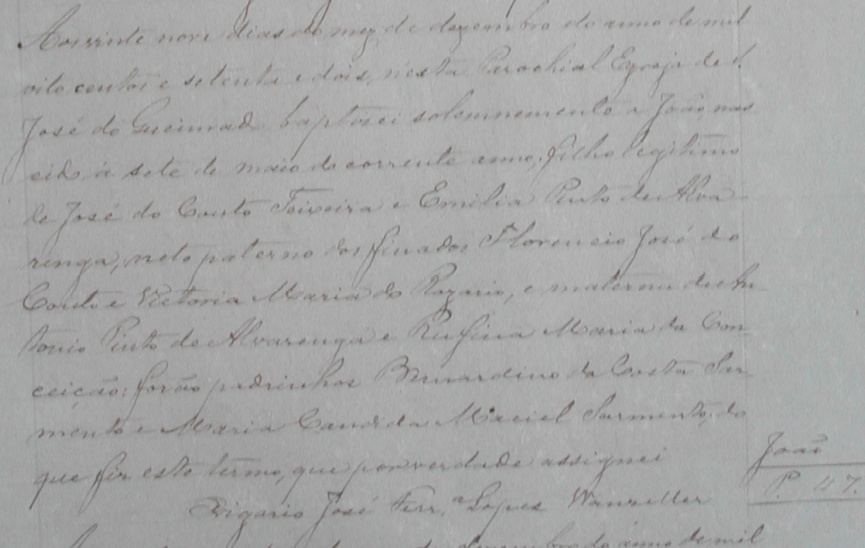 Aos vinte nove dias do mez de dezembro do anno de mil
oito centos e setenta e dois, nesta Parochial Egreja de S.
José do Queimado baptisei solemnemente a João nas
cido á sete de maio do corrente anno, filho legitimo
de José do Couto Teixeira e Emilia Pinto de Alva
renga, neto paterno dos finados Florencio José do
Couto e Victoria Maria do Rozario, e materno de An
tonio Pinto de Alvarenga e Rufina Maria da Con
ceição: forão padrinhos Bernardino da Costa Sar
mento e Maria Candida Maciel Sarmento, do
que fiz este termo, que por verdade assignei
João
Vigario José Ferr.ª Lopes
P. 47.
dezembro do anno de mil